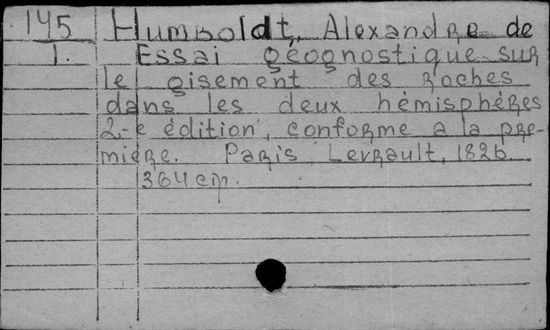 145 Humboldt, Alexandre de
I. Essai géognostique sur
le gisement des roches
dans les deux hémisphères
2-e édition, conforme a la pre-
mière. Paris, Levrault, 1826.
364 ср.